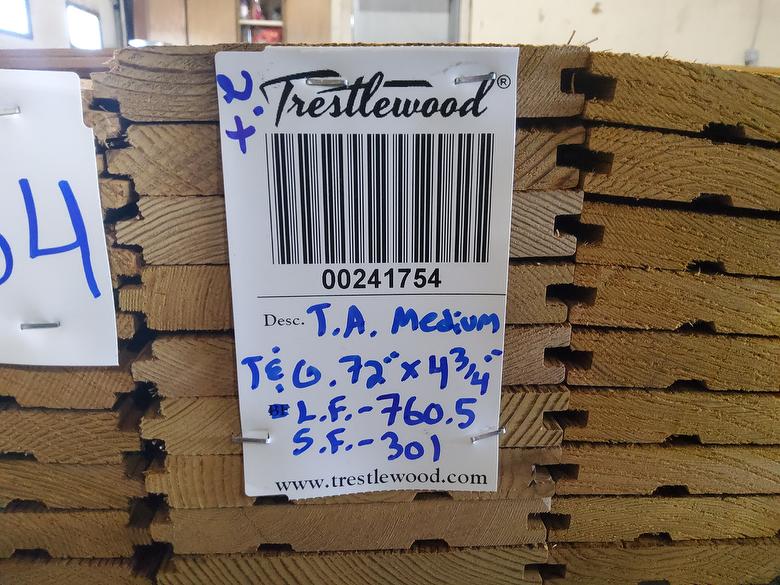 4
t.2
Trestlewood®
00241754
Desc. T.A. Medium
T&G .72" x 4 3/4"
L.F. - 760.5
S.F. - 301
www.trestlewood.com